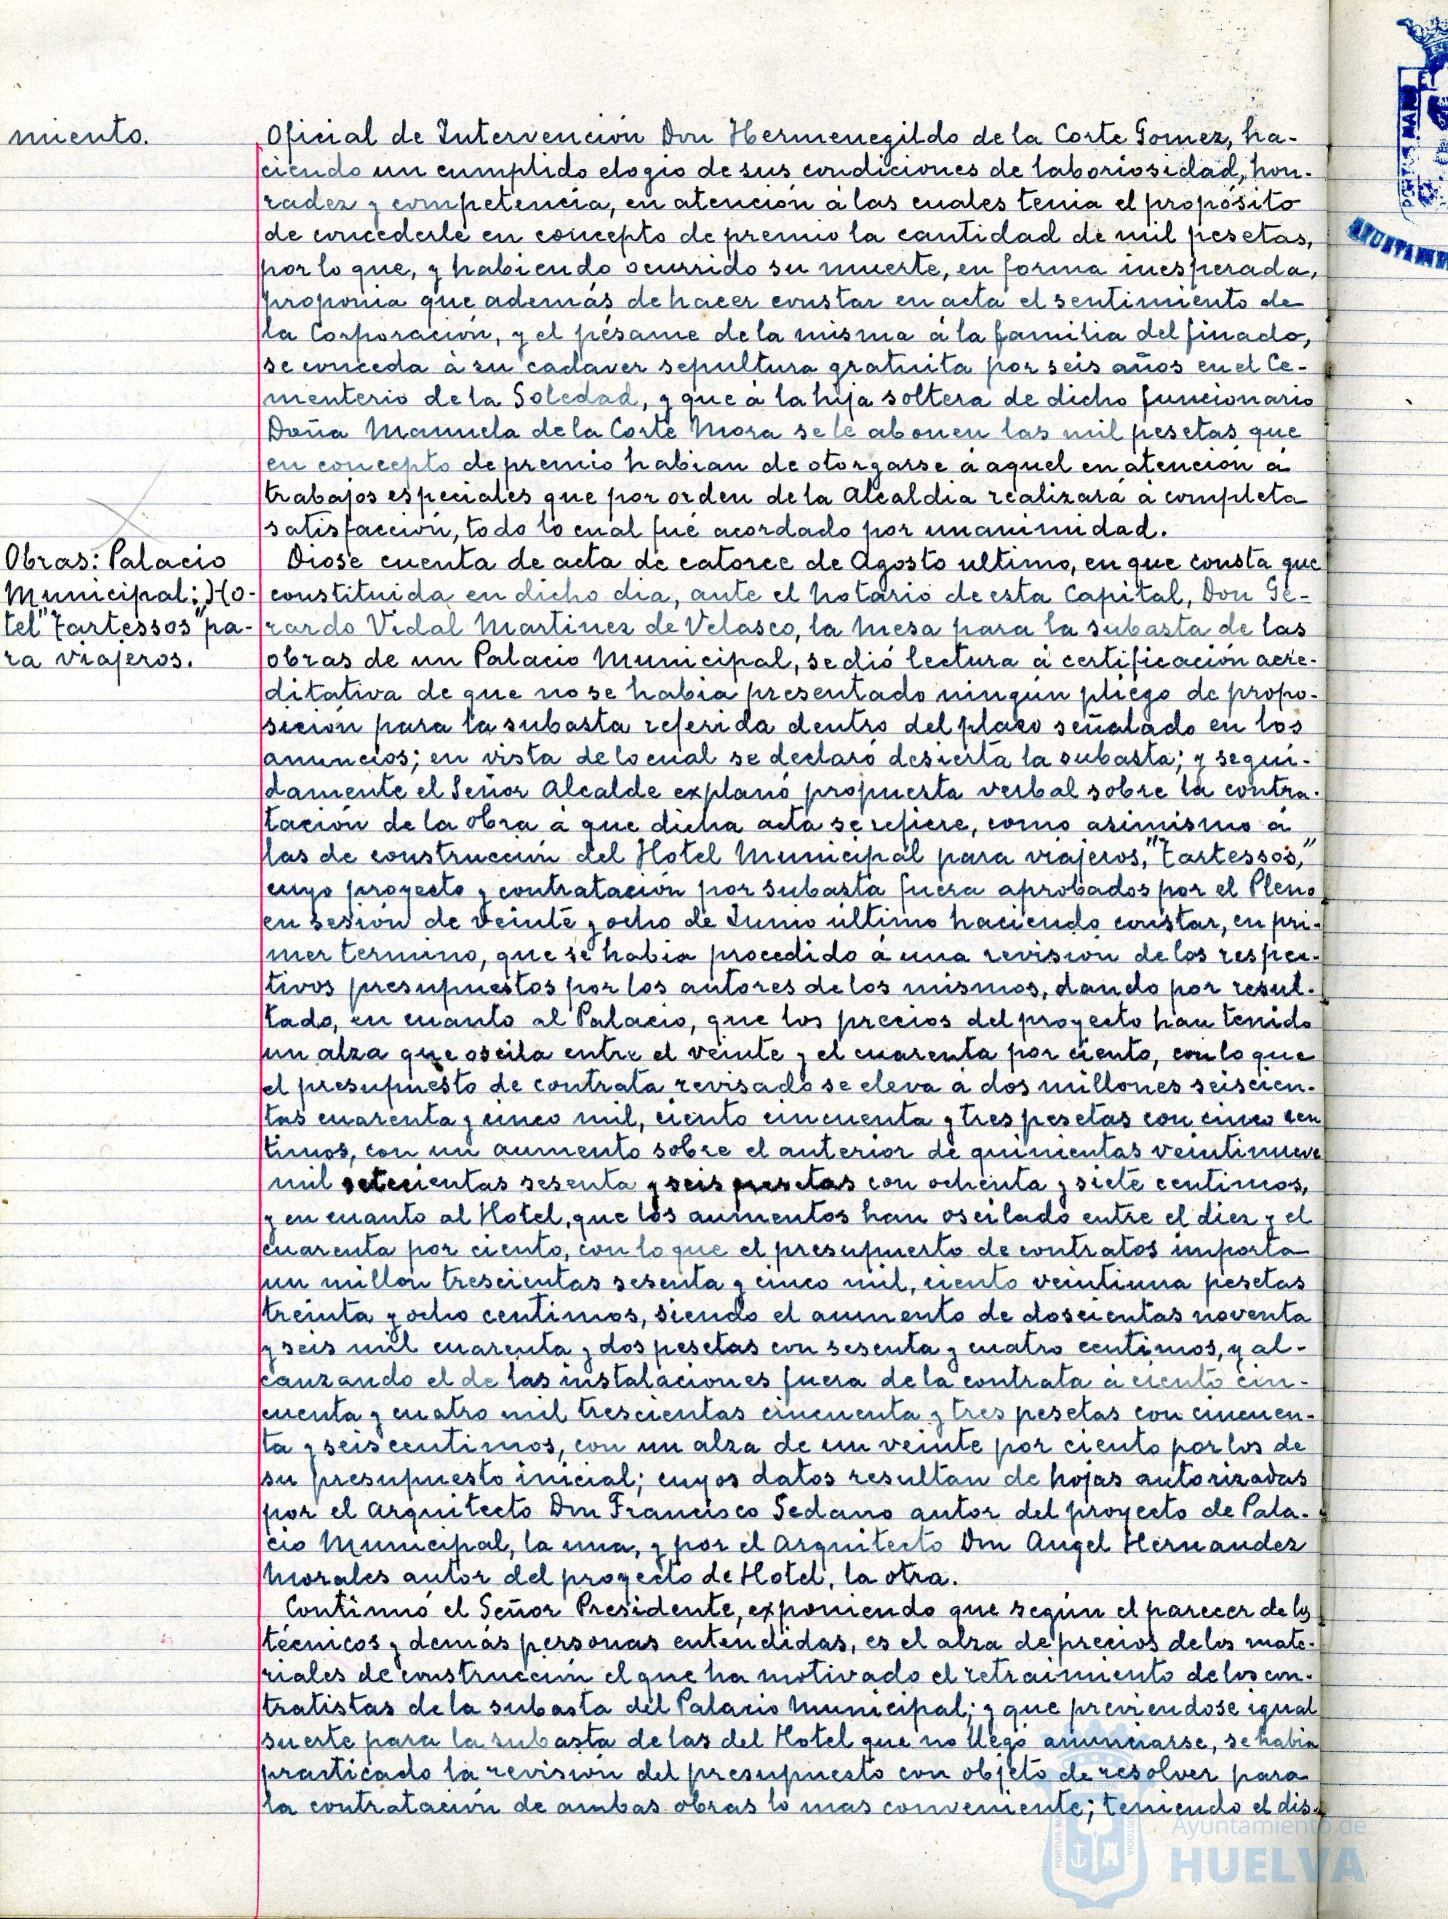 miento.
Oficial de Intervención Don Hermenegildo de la Corte Gomez, ha-
ciendo un cumplido elogio de sus condiciones de laboriosidad, hon-
radez y competencia, en atención á las cuales tenia el propósito
de concederle en concepto de premio la cantidad de mil pesetas,
por lo que, y habiendo ocurrido su muerte, en forma inesperada,
proponia que además de hacer constar en acta el sentimiento de
la Corporación, y el pésame de la misma á la familia del finado,
se conceda á su cadaver sepultura gratuita por seis años en el Ce-
menterio de la Soledad, y que á la hija soltera de dicho funcionario
Doña Manuela de la Corte Mora se le abonen las mil pesetas que
en concepto de premio habian de otorgarse á aquel en atención á
trabajos especiales que por orden de la Alcaldia realizará á completa
satisfacción, todo lo cual fué acordado por unanimidad.
Obras: Palacio
Municipal: Ho-
tel "Tartessos" pa-
ra viajeros.
Diose cuenta de acta de catorce de Agosto ultimo, en que consta que
constituida en dicho dia, ante el Notario de esta Capital, Don Ge-
rardo Vidal Martinez de Velasco, la Mesa para la subasta de las
obras de un Palacio Municipal, se dió lectura á certificación acre-
ditativa de que no se habia presentado ningún pliego de propo-
sición para la subasta referida dentro del plazo señalado en los
anuncios; en vista de lo cual se declaró desierta la subasta; y segui-
damente el Señor Alcalde explanó propuesta verbal sobre la contra-
tación de la obra á que dicha acta se refiere, como asimismo á
las de construcción del Hotel Municipal para viajeros, "Tartessos,"
cuyo proyecto y contratación por subasta fuera aprobados por el Pleno
en sesión de veinte y ocho de Junio último haciendo constar, en pri-
mer termino, que se habia procedido á una revisión de los respec-
tivos presupuestos por los autores de los mismos, dando por resul-
tado, en cuanto al Palacio, que los precios del proyecto han tenido
un alza que oscila entre el veinte y el cuarenta por ciento, con lo que
el presupuesto de contrata revisado se eleva á dos millones seiscien-
tas cuarenta y cinco mil, ciento cincuenta y tres pesetas con cinco cen
timos, con un aumento sobre el anterior de quinientas veintinueve
mil setecientas sesenta y seis pesetas con ochenta y siete centimos,
y en cuanto al Hotel, que los aumentos han oscilado entre el diez y el
cuarenta por ciento, con lo que el presupuesto de contratos importa
un millon trescientas sesenta y cinco mil, ciento veintiuna pesetas
treinta y ocho centimos, siendo el aumento de doscientas noventa
y seis mil cuarenta y dos pesetas con sesenta y cuatro centimos, y al-
canzando el de las instalaciones fuera de la contrata á ciento cin-
cuenta y cuatro mil trescientas cincuenta y tres pesetas con cincuen-
ta y seis centimos, con un alza de un veinte por ciento por los de
su presupuesto inicial; cuyos datos resultan de hojas autorizadas
por el Arquitecto Don Francisco Sedano autor del proyecto de Pala-
cio Municipal, la una, y por el Arquitecto Don Angel Hernandez
Morales autor del proyecto de Hotel, la otra.
Continuó el Señor Presidente, exponiendo que según el parecer de los
técnicos y demás personas entendidas, es el alza de precios de los mate-
riales de construcción el que ha motivado el retraimiento de los con-
tratistas de la subasta del Palacio Municipal; y que previendose igual
suerte para la subasta de las del Hotel que no llegó anunciarse, se habia
practicado la revisión del presupuesto con objeto de resolver para
la contratación de ambas obras lo mas conveniente; teniendo el dis-
Ayuntamiento de
HUELVA